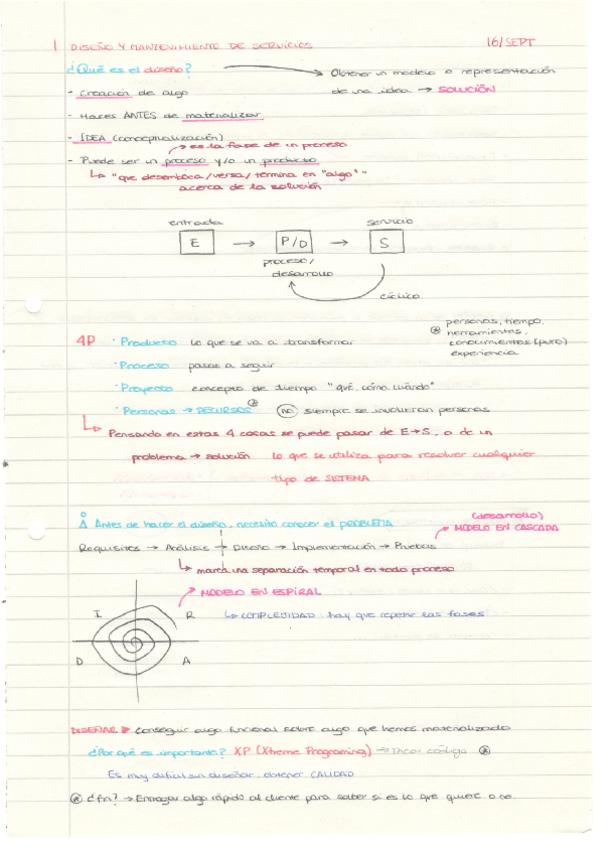 1 DISEÑO Y MANTENIMIENTO DE SERVICIOS 16/SEPT
¿Qué es el diseño? → Obtener un modelo o representación
de una idea → SOLUCIÓN
- Creación de algo
- Haces ANTES de materializar
- IDEA (conceptualización)
→ es la fase de un proceso
- Puede ser un proceso y/o un producto
↳ "que desemboca/versa/termina en "algo""
acerca de la solución
entrada servicio
E → P/D → S
proceso/
desarrollo
cíclico
4P · Producto lo que se va a transformar
· Proceso pasos a seguir
· Proyecto concepto de tiempo "qué, cómo, cuándo"
· Personas → RECURSOS * (no) siempre se involucran personas
* personas, tiempo,
herramientas,
conocimientos (puro)
experiencia
↳ Pensando en estas 4 cosas se puede pasar de E→S, o de un
problema → solución lo que se utiliza para resolver cualquier
tipo de SISTEMA
Antes de hacer el diseño, necesito conocer el PROBLEMA
(desarrollo)
MODELO EN CASCADA
Requisitos → Análisis → Diseño → Implementación → Pruebas
↳ marca una separación temporal en todo proceso
MODELO EN ESPIRAL
↳ COMPLEJIDAD hay que repetir las fases
I R
D A
DISEÑAR conseguir algo funcional sobre algo que hemos materializado
¿Por qué es importante? XP (Xtreme Programing) → código *
Es muy difícil sin diseñar, obtener CALIDAD
* ¿fin? → Entregar algo rápido al cliente para saber si es lo que quiere o no.